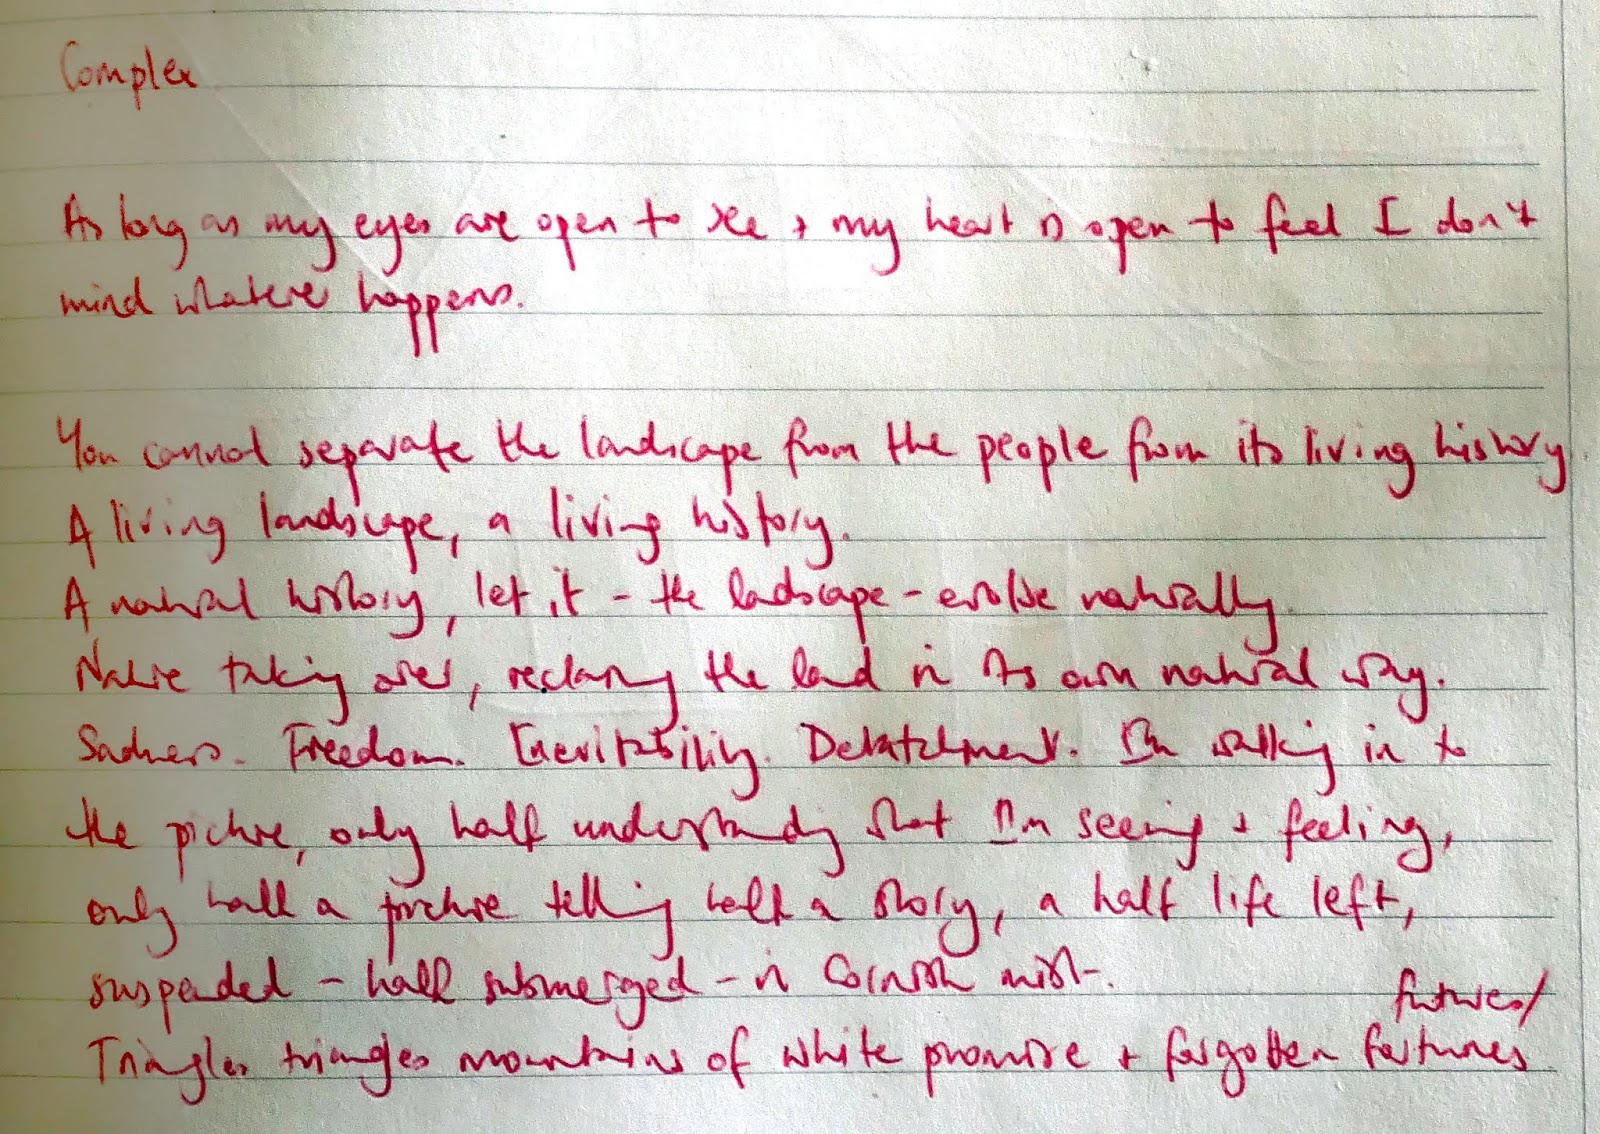 Complex
As long as my eyes are open to see + my heart is open to feel I don't
mind whatever happens.
You cannot separate the landscape from the people from its living history.
A living landscape, a living history.
A natural history, let it - the landscape - evolve naturally.
Nature taking over, reclaiming the land in its own natural way.
Sadness. Freedom. Inevitability. Detatchment. I'm walking in to
the picture, only half understanding what I'm seeing + feeling,
only half a picture telling half a story, a half life left,
suspended - half submerged - in Cornish mist.
futures/
Triangles triangles mountains of white promise + forgotten fortunes